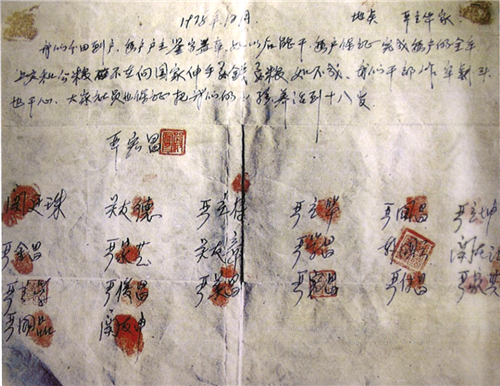 1978年12月. 地点 严立华家
我们分田到户,每户户主签字盖章,如以后能干,每户保证完成每户的全年
上交和公粮。不在向国家伸手要钱要粮。如不成,我们干部作牢刹头
也干心,大家社员也保证把我们的小孩养活到十八岁。
严宏昌
关廷珠 关友德 严立符 严立华 严国昌 严立坤
严金昌 严家芝 关友章 严学昌 韩国云 关友江
严立学 严俊昌 严美昌 严宏昌 严付昌 严家其
严国品 关友申